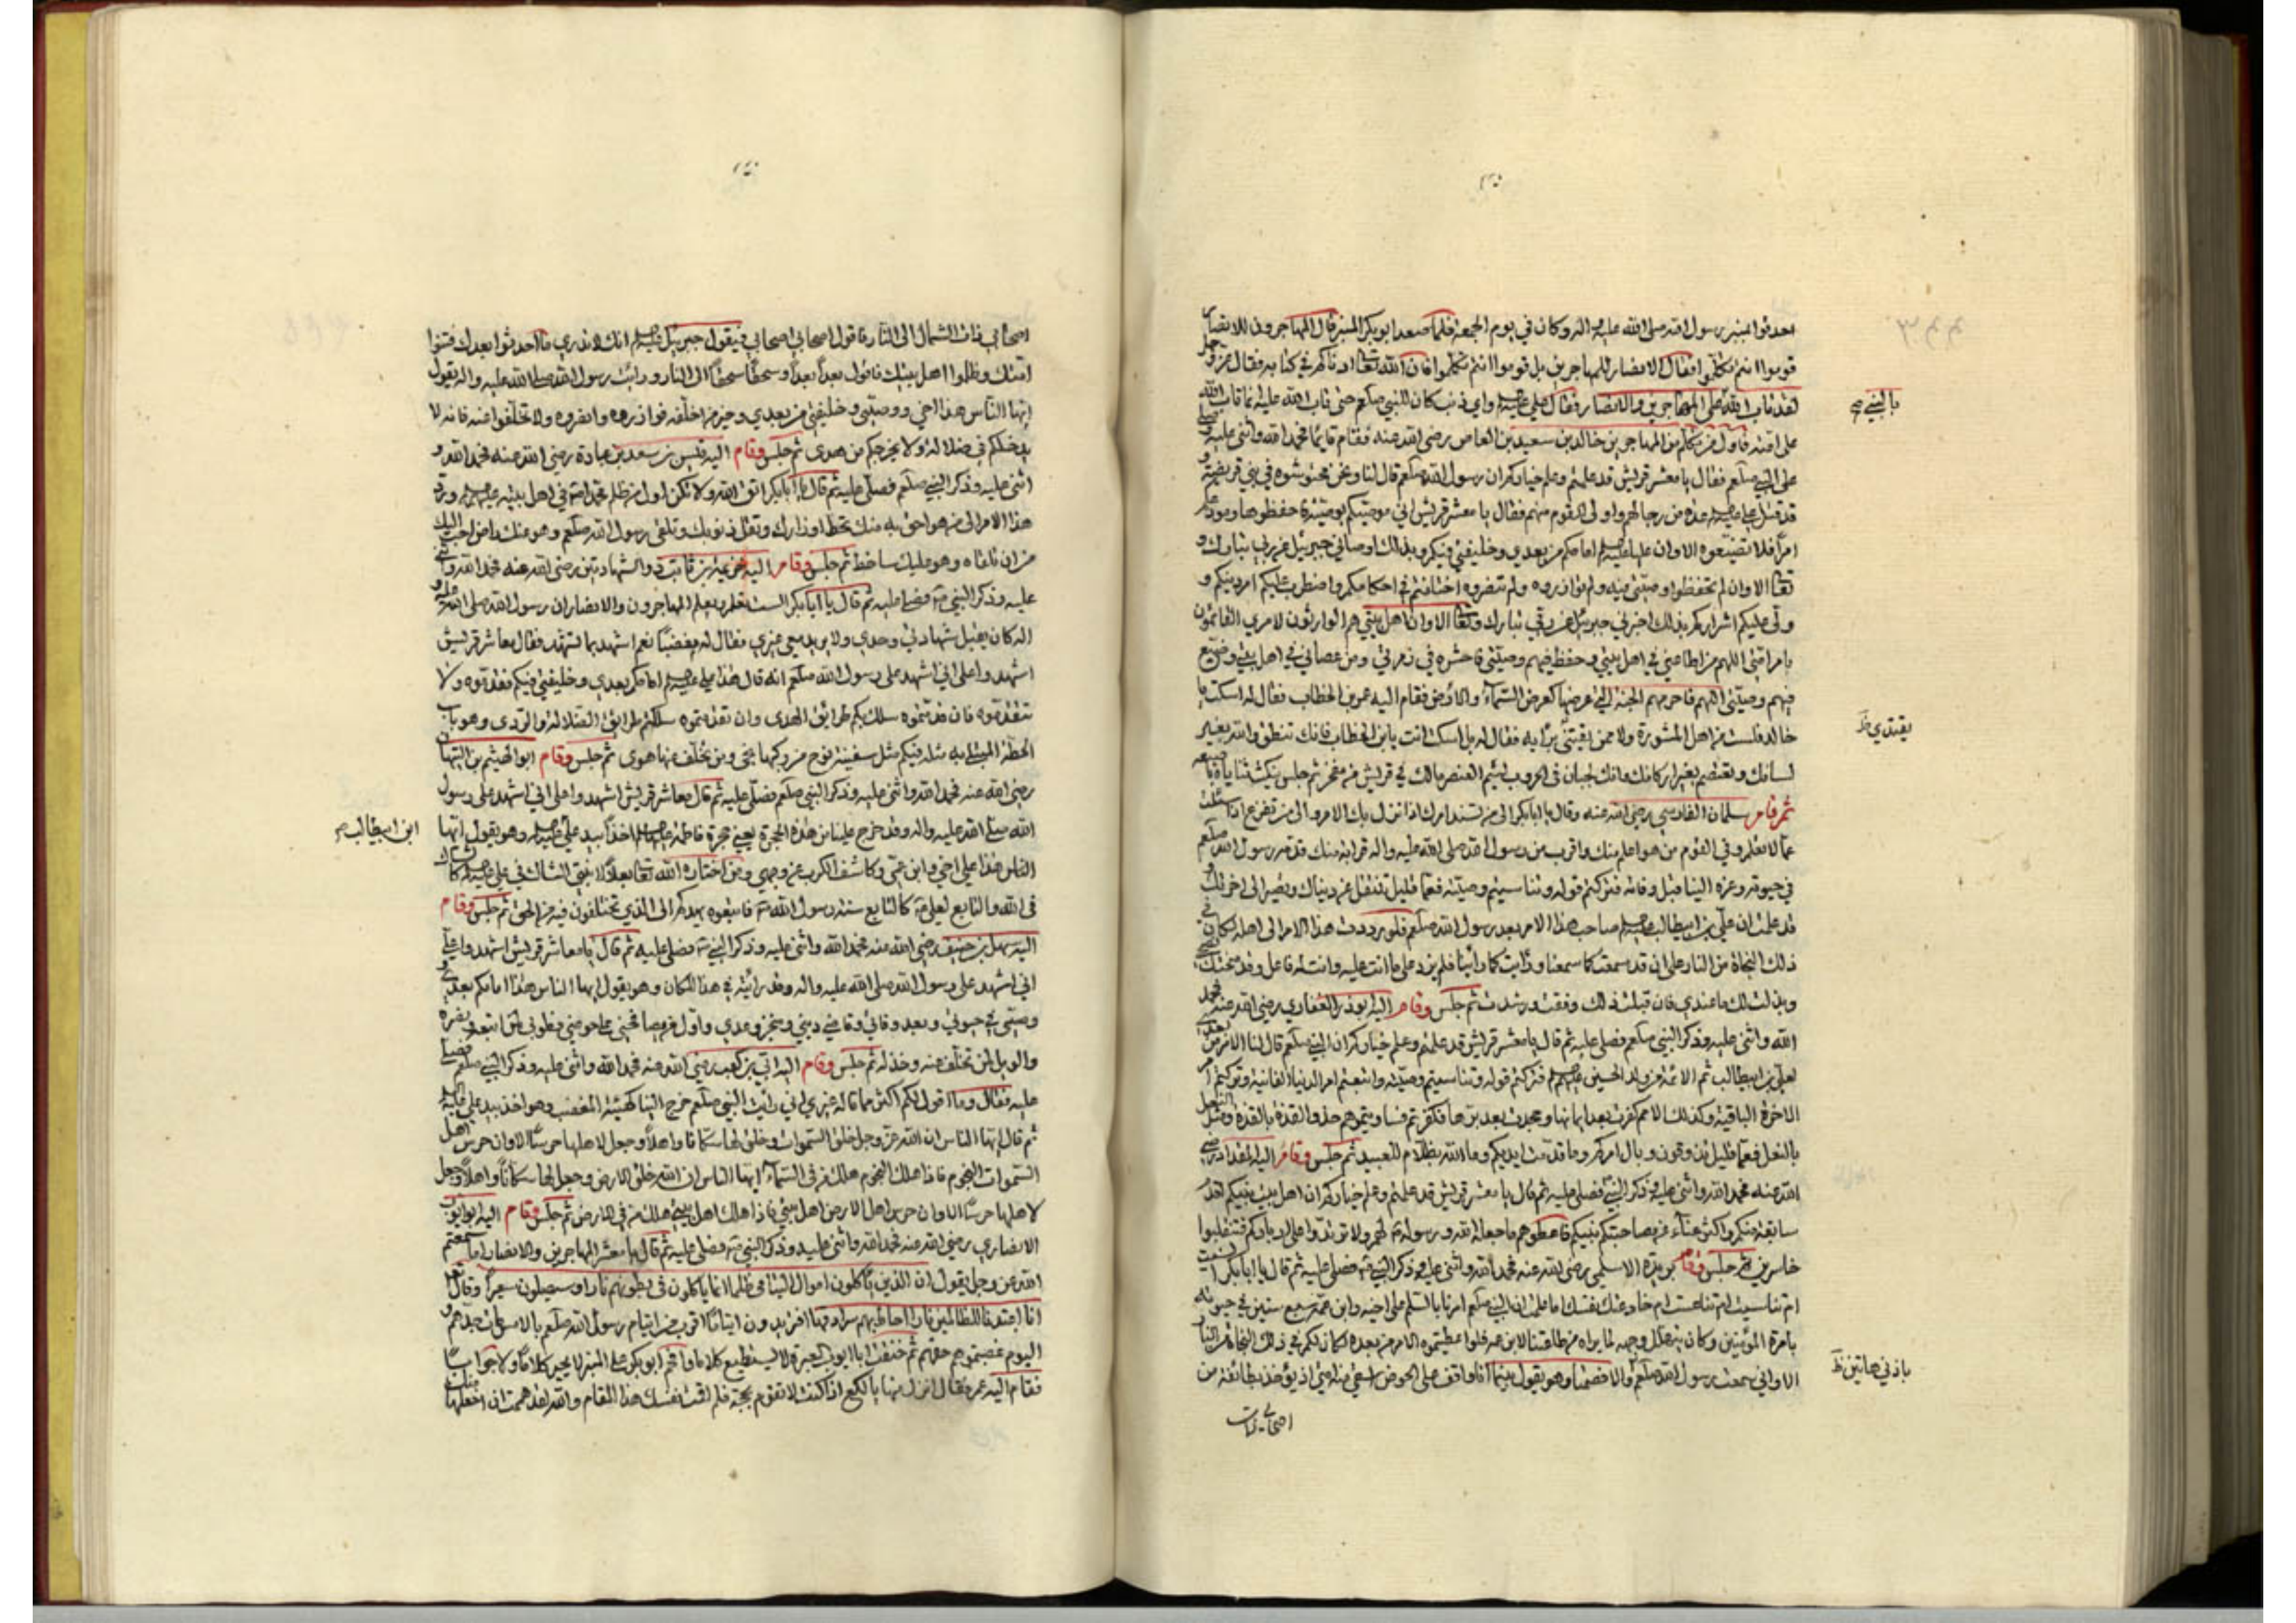 احدقوا بمنبر رسول الله صلى الله عليه واله وكان في يوم الجمعة فلما صعد ابو بكر المنبر قال المهاجرون للانصار
قوموا انتم تكلموا فقال الانصار للمهاجرين بل قوموا انتم تكلموا فان الله تعالى ادناكم في كتابه فقال عز وجل
لقد تاب الله على المهاجرين والانصار فقال علي واي ذنب كان للنبي صلعم حتى تاب الله عليه انما تاب الله
على امته فاول من تكلم من المهاجرين خالد بن سعيد بن العاص رضي الله عنه فقام قايما فحمد الله واثنى عليه
على النبي صلعم فقال يا معشر قريش قد علمتم وعلم خياركم ان رسول الله صلعم قال لنا ونحن محتوشوه في بني قريضة و
قد قتل علي عدة من رجالهم واولى القوم منهم فقال يا معشر قريش اني موصيكم بوصيتي فاحفظوها ومودعكم
امرا فلا تضيعوه الا وان عليا امامكم من بعدي وخليفتي فيكم وبذلك اوصاني جبرئيل عن ربي تبارك و
تعالى الا وان لم تحفظوا وصيتي فيه ولم توازروه ولم تنصروه اختلفتم في احكامكم واضطرب عليكم امر دينكم و
ولى عليكم اشراركم بذلك اخبرني جبرئيل عن ربي تبارك وتعالى الا وان اهل بيتي هم الوارثون لامري القائمون
بامر امتي اللهم من اطاعني في اهل بيتي وحفظ فيهم وصيتي فاحشره في زمرتي ومن عصاني في اهل بيتي وضيع
فيهم وصيتي اللهم فاحرمهم الجنة التي عرضها كعرض السماء والارض فقام اليه عمر بن الخطاب فقال له اسكت يا
خالد فلست من اهل المشورة ولا ممن برايه فقال له بل اسكت انت يا بن الخطاب فانك تنطق والله بغير
لسانك وتعتصم بغير اركانك وانك لجبان في الحروب لئيم العنصر مالك في قريش من مفخر ثم جلس ينكث ثناياه
ثم قام سلمان الفارسي رضي الله عنه وقال يا ابا بكر الى من تسند امرك اذا نزل بك الامر والى من تفزع اذا سئلت
عما لا تعلم وفي القوم من هو اعلم منك واقرب من رسول الله صلى الله عليه واله قرابة منك قدمه رسول الله صلعم
في حيوته وعزه الينا قبل وفاته فتركتم قوله وتناسيتم وصيته فعما قليل تنتقل عن دنياك وتصير الى اخرتك و
قد علمت ان علي بن ابيطالب صاحب هذا الامر بعد رسول الله صلعم فلو رددت هذا الامر الى اهله لكان في
ذلك النجاة من النار على ان قد سمعت كما سمعنا ورايت كما راينا فلم يزد على ما انت عليه وانت له فاعل وقد منحتك
وبذلت لك ما عندي فان قبلت ذلك وفقت ورشدت ثم جلس وقام اليه ابو ذر الغفاري رضي الله عنه فحمد
الله واثنى عليه وذكر النبي صلعم فصلى عليه ثم قال يا معشر قريش قد علمتم وعلم خياركم ان النبي صلعم قال لنا الامر من بعدي
لعلي بن ابيطالب ثم الائمة من ولد الحسين فتركتم قوله وتناسيتم وصيته واتبعتم امر الدنيا الفانية وتركتم
الاخرة الباقية وكذلك الامم كفرت بعد ايمانها وجحدت بعد برها فكفرتم فساويتموهم حذو القذة بالقذة ومثل النعل
بالنعل فعما قليل تذوقون وبال امركم وما قدمت ايديكم وما الله بظلام للعبيد ثم جلس وقام اليه المقداد رضي
الله عنه فحمد الله واثنى عليه وذكر النبي فصلى عليه ثم قال يا معشر قريش قد علمتم وعلم خياركم ان اهل بيت نبيكم اقدم
سابقة منكم واكثر عناء فيصاحبتكم نبيكم فاعطوهم ما جعله الله ورسوله لهم ولا ترتدوا على ادباركم فتنقلبوا
خاسرين ثم جلس وقام بريدة الاسلمي رضي الله عنه فحمد الله واثنى عليه وذكر النبي فصلى عليه ثم قال يا ابا بكر انسيت
ام تناسيت ام تناعست ام خادعتك نفسك اما علمت ان النبي صلعم امرنا بالسلم على اخيه وابن عمه سبع سنين في حيوته
بامرة المؤمنين وكان يتهلل وجهه لما يراه من طاعتنا لابن عمه فلو اعطيتموه الامر من بعده لكان لكم في ذلك النجاة من النار
الا واني سمعت رسول الله صلعم والا فصمتا وهو يقول بينما انا واقف على الحوض اسقي منه امتي اذ يؤخذ بطائفة من
اصحابي ذات
بالنبي صح
يقتدي ظ
باذني هاتين ظ
اصحابي ذات الشمال الى النار فاقول اصحابي اصحابي فيقول جبرئيل انك لا تدري ما احدثوا بعدك فتنوا
امتك وظلموا اهل بيتك فاقول بعدا بعدا وسحقا سحقا الى النار ورايت رسول الله صلى الله عليه واله يقول
ايها الناس هذا اخي ووصيي وخليفتي من بعدي وخير من اخلفه فوازروه وانصروه ولا تخلفوا عنه فانه لا
يدخلكم في ضلالة ولا يخرجكم من هدى ثم جلس وقام اليه قيس بن سعد بن عبادة رضي الله عنه فحمد الله و
اثنى عليه وذكر النبي صلعم فصلى عليه ثم قال يا ابا بكر اتق الله ولا تكن اول من ظلم محمدا في اهل بيته ورد
هذا الامر الى من هو احق به منك تحط اوزارك وتقل ذنوبك وتلقى رسول الله صلعم وهو عنك راض احب اليك
من ان تلقاه وهو عليك ساخط ثم جلس وقام اليه خزيمة بن ثابت ذو الشهادتين رضي الله عنه فحمد الله واثنى
عليه وذكر النبي فصلى عليه ثم قال يا ابا بكر الست تعلم ويعلم المهاجرون والانصار ان رسول الله صلى الله عليه و
اله كان يقبل شهادتي وحدي ولا يريد معي غيري فقال له مغضبا نعم اشهد بما تشهد فقال معاشر قريش
اشهدوا علي اني اشهد على رسول الله صلعم انه قال هذا علي امامكم بعدي وخليفتي فيكم فقدموه ولا
تتقدموه فان قدمتموه سلك بكم طرائق الهدى وان تقدمتموه سلكتم طرائق الضلالة والردى وهو باب
الحطة المبتلى به مثله فيكم مثل سفينة نوح من ركبها نجى ومن تخلف عنها هوى ثم جلس وقام ابو الهيثم بن التيهان
رضي الله عنه فحمد الله واثنى عليه وذكر النبي صلعم فصلى عليه ثم قال معاشر قريش اشهدوا علي اني اشهد على رسول
الله صلى الله عليه واله وقد خرج علينا من هذه الحجرة يعني حجرة فاطمة اخذا بيد علي وهو يقول ايها
الناس هذا علي اخي وابن عمي وكاشف الكرب عن وجهي ومن اختاره الله تعالى بعلا لابنتي الشاك في علي كالشاك
في الله والتابع لعلي كالتابع سنة رسول الله فاتبعوه يهدكم الى الذي تختلفون فيه من الحق ثم جلس وقام
اليه سهل بن حنيف رضي الله عنه فحمد الله واثنى عليه وذكر النبي فصلى عليه ثم قال يا معاشر قريش اشهدوا علي
اني اشهد على رسول الله صلى الله عليه واله وقد رايته في هذا المكان وهو يقول ايها الناس هذا امامكم بعدي و
وصيي في حيوتي وبعد وفاتي وقاضي ديني ومنجز وعدي واول من يصافحني على حوضي فطوبى لمن اتبعه ونصره
والويل لمن تخلف عنه وخذله ثم جلس وقام اليه ابي بن كعب رضي الله عنه فحمد الله واثنى عليه وذكر النبي صلعم فصلى
عليه فقال وما اقول لكم اكثر مما قاله غيري اني رايت النبي صلعم خرج الينا كهيئة المغضب وهو اخذ بيد علي
ثم قال ايها الناس ان الله عز وجل خلق السموات وخلق لها سكانا واهلا وجعل لاهلها حرسا الا وان حرس اهل
السموات النجوم فاذا هلك النجوم هلك من في السماء ايها الناس ان الله خلق الارض وجعل لها سكانا واهلا وجعل
لاهلها حرسا الا وان حرس اهل الارض اهل بيتي فاذا هلك اهل بيتي هلك من في الارض ثم جلس وقام اليه ابو ايوب
الانصاري رضي الله عنه فحمد الله واثنى عليه وذكر النبي فصلى عليه ثم قال يا معشر المهاجرين والانصار اما سمعتم
الله عز وجل يقول ان الذين ياكلون اموال اليتامى ظلما انما ياكلون في بطونهم نارا وسيصلون سعيرا وقال تعالى
انا اعتدنا للظالمين نارا احاط بهم سرادقها افتريدون ايتاما اقرب من ايتام رسول الله صلعم بالامس مات جدهم و
اليوم غصبتموهم حقهم ثم خنقت ابا ايوب العبرة لا يستطيع كلاما وافحم ابو بكر على المنبر لا يحير كلاما ولا جوابا
فقام اليه عمر فقال انزل عنها يا لكع اذا كنت لا تقوم بحجة فلم اقمت نفسك هذا المقام والله لقد هممت ان اخلعها منك
ابن ابيطالب صح